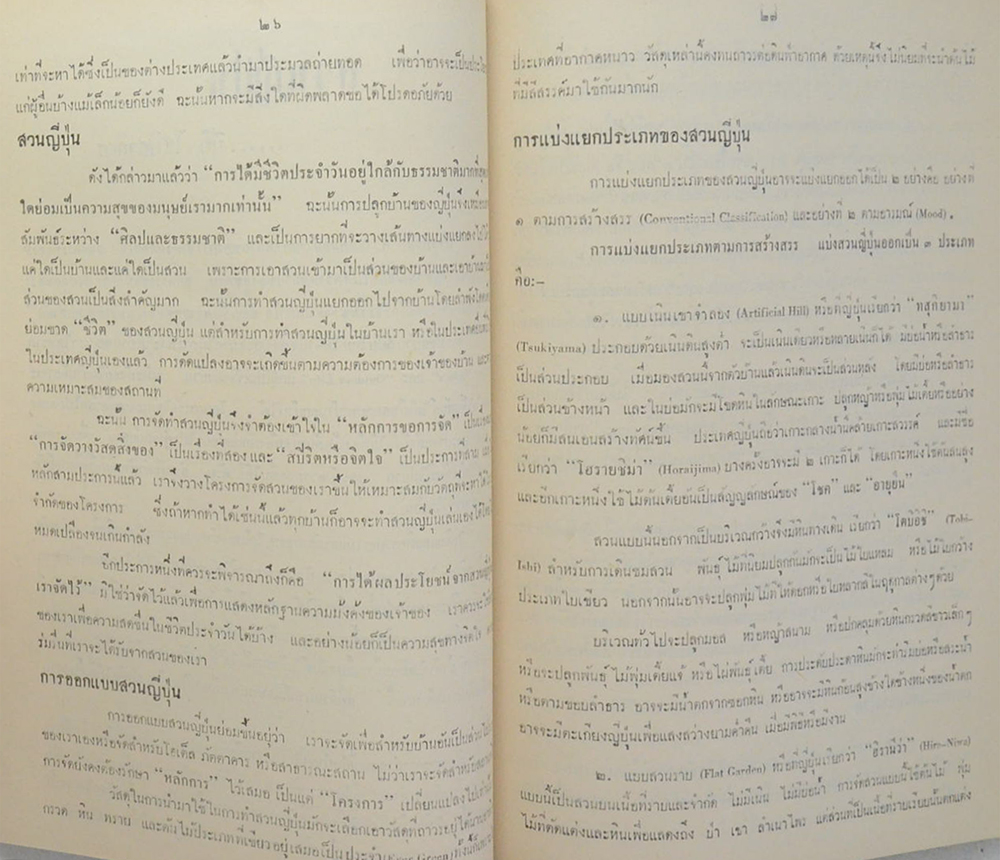 ๒๖
เท่าที่จะหาได้ซึ่งเป็นของต่างประเทศแล้วนำมาประมวลถ่ายทอด เพื่อว่าอาจจะเป็น
แก่ผู้อื่นบ้างแม้เล็กน้อยก็ยังดี ฉะนั้นหากจะมีสิ่งใดที่ผิดพลาดขอได้โปรดอภัยด้วย
สวนญี่ปุ่น
ดังได้กล่าวมาแล้วว่า “การได้มีชีวิตประจำวันอยู่ใกล้กับธรรมชาติมากที่สุด
ใดย่อมเป็นความสุขของมนุษย์เรามากเท่านั้น” ฉะนั้นการปลูกบ้านของญี่ปุ่นจึง
สัมพันธ์ระหว่าง “ศิลปและธรรมชาติ” และเป็นการยากที่จะวางเส้นทางแบ่งแยกลง
แค่ใดเป็นบ้านและแค่ใดเป็นสวน เพราะการเอาสวนเข้ามาเป็นส่วนของบ้านและเอาบ้าน
ส่วนของสวนเป็นสิ่งสำคัญมาก ฉะนั้นการทำสวนญี่ปุ่นแยกออกไปจากบ้านโดยลำพัง
ย่อมขาด “ชีวิต” ของสวนญี่ปุ่น แต่สำหรับการทำสวนญี่ปุ่นในบ้านเรา หรือในประเทศอื่น
ในประเทศญี่ปุ่นเองแล้ว การดัดแปลงอาจจะเกิดขึ้นตามความต้องการของเจ้าของบ้าน และ
ความเหมาะสมของสถานที่
ฉะนั้น การจัดทำสวนญี่ปุ่นจึงจำต้องเข้าใจใน “หลักการขอการจัด” เป็น
“การจัดวางวัสดุสิ่งของ” เป็นเรื่องที่สอง และ “สปิริตหรือจิตใจ” เป็นประการที่สาม
หลักสามประการนี้แล้ว เราจึงวางโครงการจัดสวนของเราขึ้น ให้เหมาะสมกับวัตถุที่จะหาได้
จำกัดของโครงการ ซึ่งถ้าหากทำได้เช่นนี้แล้วทุกบ้านก็อาจจะทำสวนญี่ปุ่นเล่นเองได้
หมดเปลืองจนเกินกำลัง
อีกประการหนึ่งที่ควรจะพิจารณาถึงก็คือ “การได้ผลประโยชน์จากสวนญี่ปุ่น
เราจัดไว้” มิใช่ว่าจัดไว้แล้วเพื่อการแสดงหลักฐานความมั่งคั่งของเจ้าของ เราควรจะ
ของเราเพื่อความสดชื่นในชีวิตประจำวันได้บ้าง และอย่างน้อยก็เป็นความสุขทางจิตใจ
ร่มรื่นที่เราจะได้รับจากสวนของเรา
การออกแบบสวนญี่ปุ่น
การออกแบบสวนญี่ปุ่นย่อมขึ้นอยู่ว่า เราจะจัดเพื่อสำหรับบ้านอันเป็นส่วน
ของเราเองหรือจัดสำหรับโฮเต็ล ภัตตาคาร หรือสาธารณะสถาน ไม่ว่าเราจะจัดสำหรับ
การจัดยังคงต้องรักษา “หลักการ” ไว้เสมอ เป็นแต่ “โครงการ” เปลี่ยนแปลงไป
วัสดุในการนำมาใช้ในการทำสวนญี่ปุ่นมักจะเลือกเอาวัสดุที่ถาวรอยู่ได้นาน
กรวด หิน ทราย และต้นไม้ประเภทที่เขียวอยู่เสมอเป็นประจำ
๒๗
ประเทศที่อากาศหนาว วัสดุเหล่านี้คงทนถาวรต่อดินฟ้าอากาศ ด้วยเหตุนี้จึงไม่นิยมที่จะนำต้นไม้
ที่มีสีสรรค์มาใช้กันมากนัก
การแบ่งแยกประเภทของสวนญี่ปุ่น
การแบ่งแยกประเภทของสวนญี่ปุ่นอาจจะแบ่งแยกออกได้เป็น ๒ อย่างคือ อย่างที่
๑ ตามการสร้างสรร (Conventional Classification) และอย่างที่ ๒ ตามอารมณ์ (Mood).
การแบ่งแยกประเภทตามการสร้างสรร แบ่งสวนญี่ปุ่นออกเป็น ๓ ประเภท
คือ:–
๑. แบบเนินเขาจำลอง (Artificial Hill) หรือที่ญี่ปุ่นเรียกว่า “ทสุกิยามา”
(Tsukiyama) ประกอบด้วยเนินดินสูงต่ำ จะเป็นเนินเดียวหรือหลายเนินก็ได้ มีบ่อน้ำหรือลำธาร
เป็นส่วนประกอบ เมื่อมองสวนนี้จากตัวบ้านแล้วเนินดินจะเป็นส่วนหลัง โดยมีบ่อหรือลำธาร
เป็นส่วนข้างหน้า และในบ่อมักจะมีโขดหินในลักษณะเกาะ ปลูกหญ้าหรือพุ่มไม้เตี้ยหรืออย่าง
น้อยก็มีสนเอนสร้างทัศน์ขึ้น ประเทศญี่ปุ่นถือว่าเกาะกลางน้ำนี้คล้ายเกาะสวรรค์ และมีชื่อ
เรียกว่า “โฮรายชิม่า” (Horaijima) บางครั้งอาจจะมี ๒ เกาะก็ได้ โดยเกาะหนึ่งใช้ต้นสนสูง
และอีกเกาะหนึ่งใช้ไม้ต้นเตี้ยอันเป็นสัญญลักษณ์ของ “โชค” และ “อายุยืน”
สวนแบบนี้นอกจากเป็นบริเวณกว้างจึงมีหินทางเดิน เรียกว่า “โตบิอิชิ” (Tobi-
Ishi) สำหรับการเดินชมสวน พันธุ์ไม้ที่นิยมปลูกกันมักจะเป็นไม้ใบแหลม หรือไม้ใบกว้าง
ประเภทใบเขียว นอกจากนั้นอาจจะปลูกพุ่มไม้ที่ให้ดอกหรือใบหลากสีในฤดูกาลต่างๆด้วย
บริเวณทั่วไปจะปลูกมอส หรือหญ้าสนาม หรือปกคลุมด้วยหินกรวดสีขาวเล็กๆ
หรือจะปลูกพันธุ์ไม้พุ่มเตี้ยแจ้ หรือไผ่พันธุ์เตี้ย การประดับประดาหินมักจะทำริมบ่อหรือสระน้ำ
หรือตามขอบลำธาร อาจจะมีน้ำตกจากซอกหิน หรืออาจจะมีหินก้อนสูงข้างใดข้างหนึ่งของน้ำตก
อาจจะมีตะเกียงญี่ปุ่นเพื่อแสงสว่างยามค่ำคืน เมื่อมีพิธีหรือมีงาน
๒. แบบสวนราบ (Flat Garden) หรือที่ญี่ปุ่นเรียกว่า “ฮิรานิว่า” (Hira-Niwa)
แบบนี้เป็นสวนบนเนื้อที่ราบและจำกัด ไม่มีเนิน ไม่มีบ่อน้ำ การจัดสวนแบบนี้ใช้ต้นไม้ พุ่ม
ไม้ที่ตัดแต่งและหินเพื่อแสดงถึง ป่า เขา ลำเนาไพร แต่ส่วนที่เป็นเนื้อที่ราบเรียบนั้นตกแต่ง